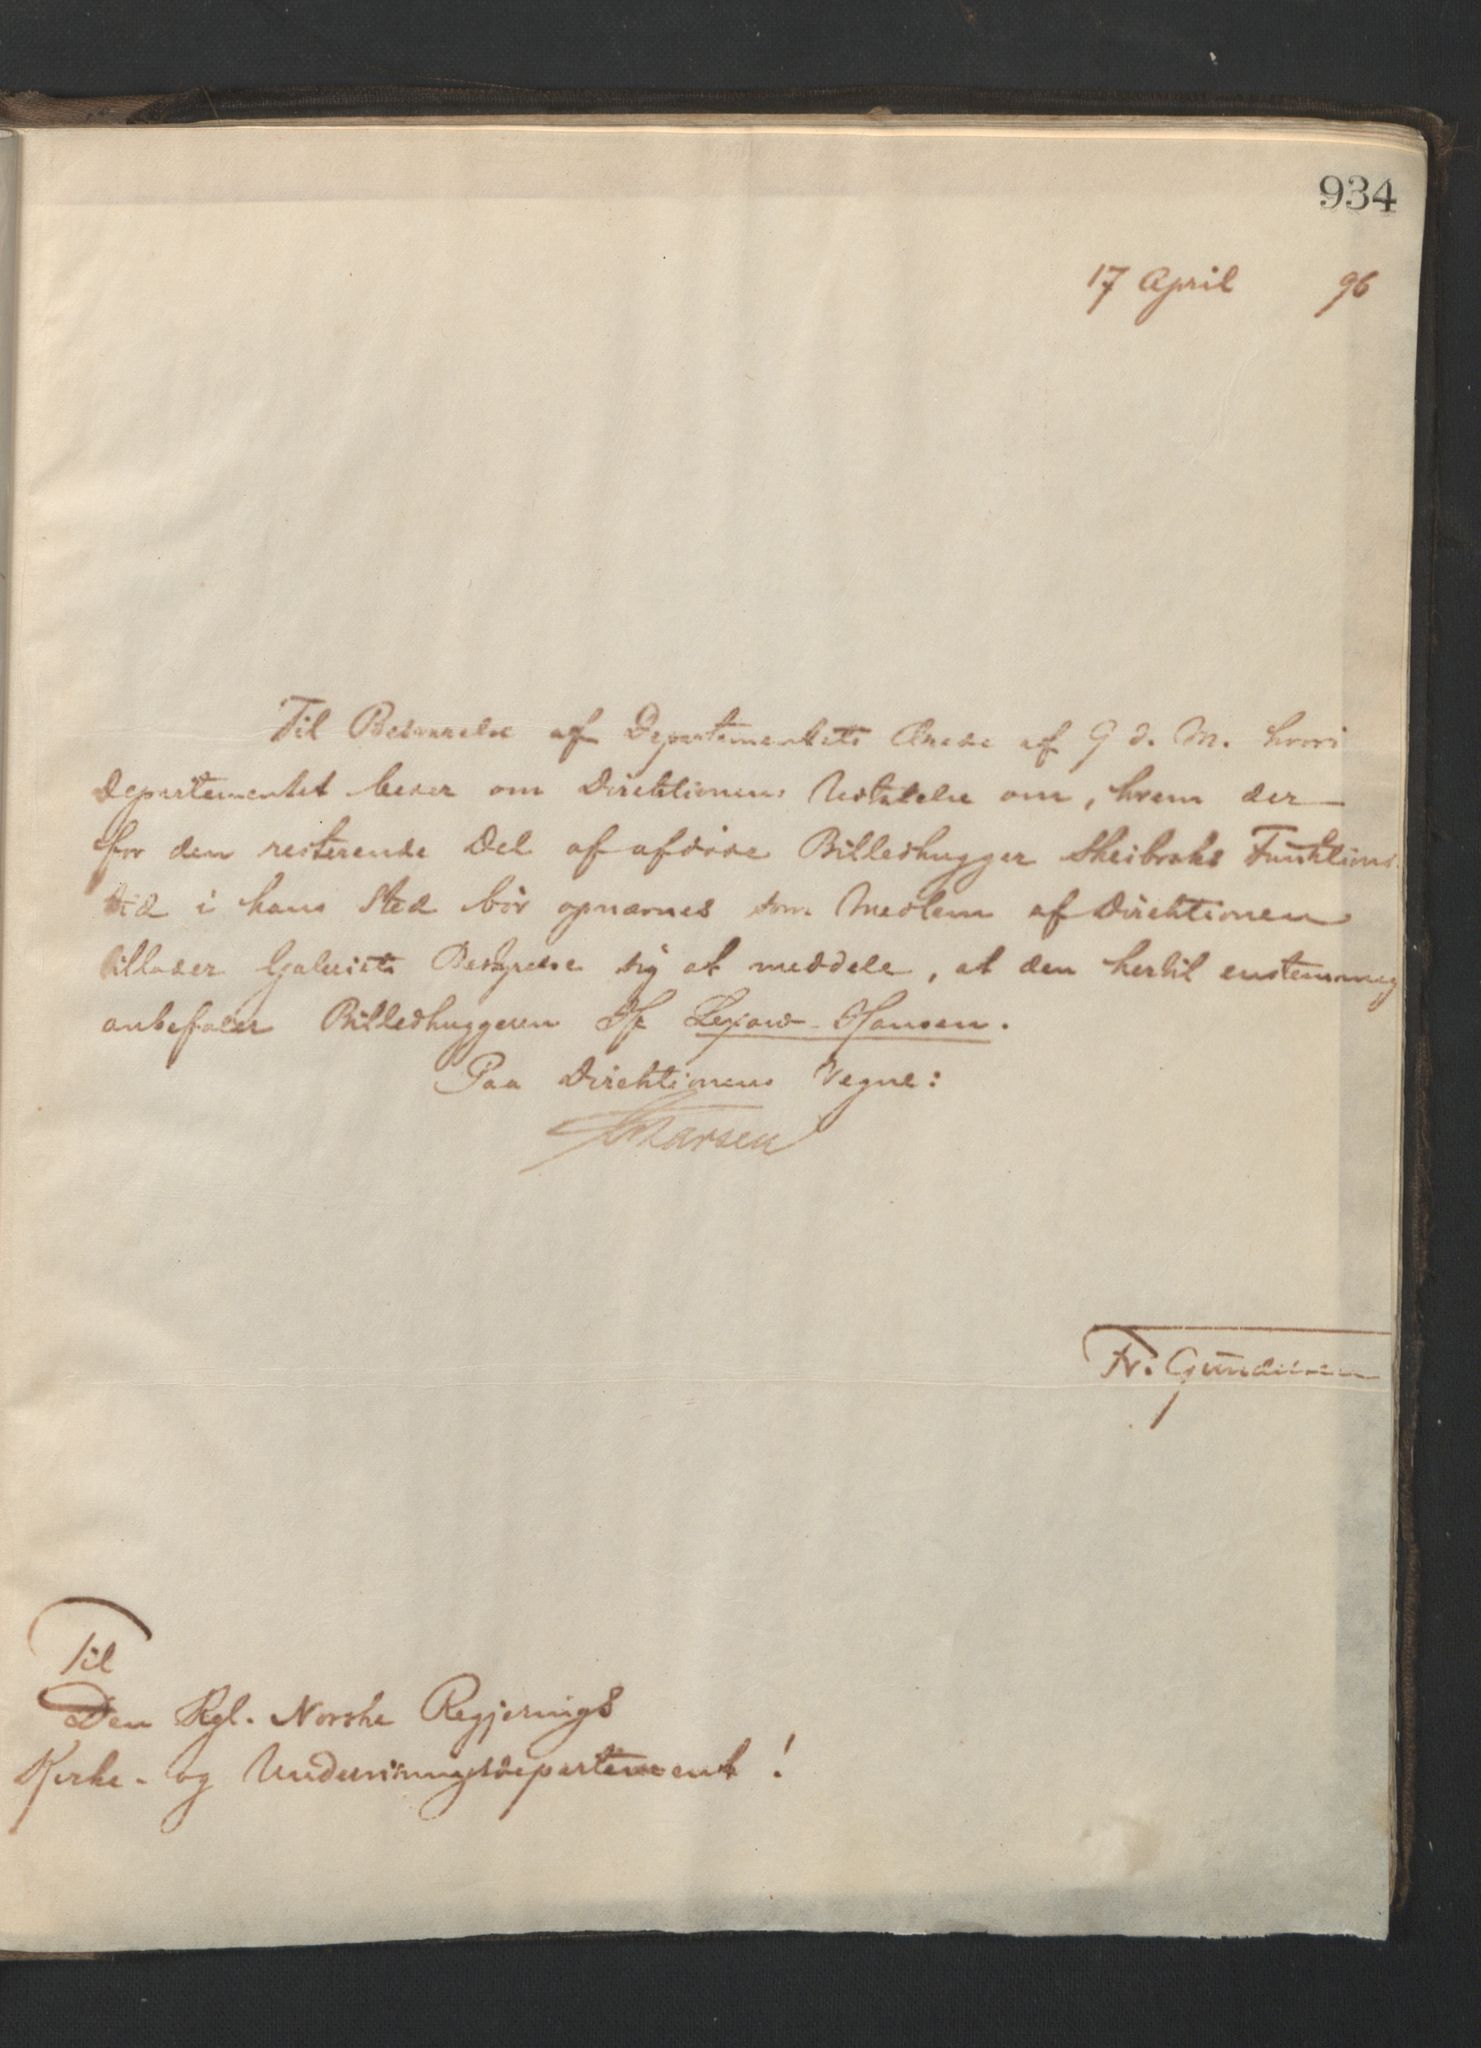 934
17 April 96
Til Besvarelse af Departementets Ærede af 9 d. M. hvori
Departementet beder om Direktionens Udtalelse om, hvem der
for den resterende Del af afdøde Billedhugger Skeibroks Funktions
tid i hans Sted bør opnævnes som Medlem af Direktionen
tillader Galeriets Bestyrelse sig at meddele, at den hertil enstemmig
anbefaler Billedhuggeren Hr Lexow-Hansen.
Paa Direktionens Vegne:
Fr. Gundersen
Til
Den Kgl. Norske Regjerings
Kirke- og Undervisningsdepartement!